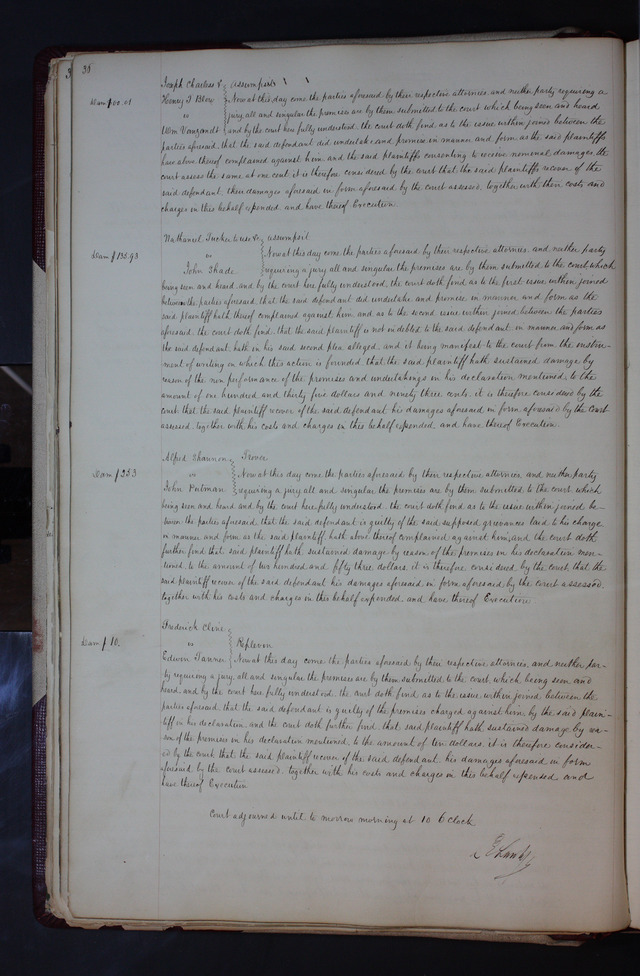 36
Joseph Charless & } Assumpsit
Dam $ 00.01 Henry T Blow } Now at this day come the parties aforesaid by their respective attornies, and neither party requiring a
vs } jury all and singular the premises are by them submitted to the court which being seen and heard
Wm Vanzandt } and by the court here fully understood, the court doth find as to the issue within joined between the
parties aforesaid, that the said defendant did undertake and promise in manner and form as the said plaintiffs
have above thereof complained against him and the said plaintiffs consenting to receive nominal damages, the
court assess the same at one cent it is therefore considered by the court that the said plaintiffs recover of the
said defendant their damages aforesaid in form aforesaid by the court assessed, together with their costs and
charges in this behalf expended and have thereof Execution.
Nathaniel Tucker } assumpsit
Dam $ 135.93 vs } Now at this day come the parties aforesaid by their respective attornies and neither party
John Shade } requiring a jury all and singular the premises are by them submitted to the court, which
being seen and heard, and by the court here fully understood, the court doth find as to the first issue within joined
between the parties aforesaid, that the said defendant did undertake and promise in manner and form as the
said plaintiff hath thereof complained against him, and as to the second issue within joined, between the parties
aforesaid, the court doth find, that the said plaintiff is not indebted to the said defendant in manner and form as
the said defendant, hath in his said second plea alleged, and it being manifest to the court from the instru-
ment of writing on which this action is founded that the said plaintiff hath sustained damage by
reason of the non performance of the premises and undertakings in his declaration mentioned, to the
amount of one hundred and thirty five dollars and ninety three cents. it is therefore considered by the
court that the said plaintiff recover of the said defendant his damages aforesaid in form aforesaid by the court
assessed, together with his costs and charges in this behalf expended, and have thereof Execution.
Alfred Shannon } Trover
Dam $ 253 vs } Now at this day come the parties aforesaid by their respective attornies, and neither party
John Putman } requiring a jury all and singular the premises are by them submitted to the court which
being seen and heard and by the court here fully understood the court doth find as to the issue within joined be-
tween the parties aforesaid, that the said defendant is guilty of the said supposed grievances laid to his charge
in manner and form as the said plaintiff hath above thereof complained against him, and the court doth
further find that said plaintiff hath sustained damage by reason of the premises in his declaration men-
tioned, to the amount of two hundred and fifty three dollars, it is therefore considered by the court, that the
said plaintiff recover of the said defendant his damages aforesaid in form aforesaid, by the court assessed,
together with his costs and charges in this behalf expended and have thereof Execution.
Frederick Cline }
Dam $ 10. vs } Replevin
Edwin Tanner } Now at this day come the parties aforesaid by their respective attornies, and neither par-
ty requiring a jury, all and singular the premises are by them submitted to the court which being seen and
heard, and by the court here fully understood, the court doth find, as to the issue within joined between the
parties aforesaid, that the said defendant is guilty of the premises charged against him, by the said plain-
tiff in his declaration and the court doth further find that said plaintiff hath sustained damage by rea-
son of the premises in his declaration mentioned, to the amount of ten dollars, it is therefore consider-
ed by the court that the said plaintiff recover of the said defendant his damages aforesaid in form
aforesaid by the court assessed, together with his costs and charges in this behalf expended and
have thereof Execution
Court adjourned until to morrow morning at 10 o'clock